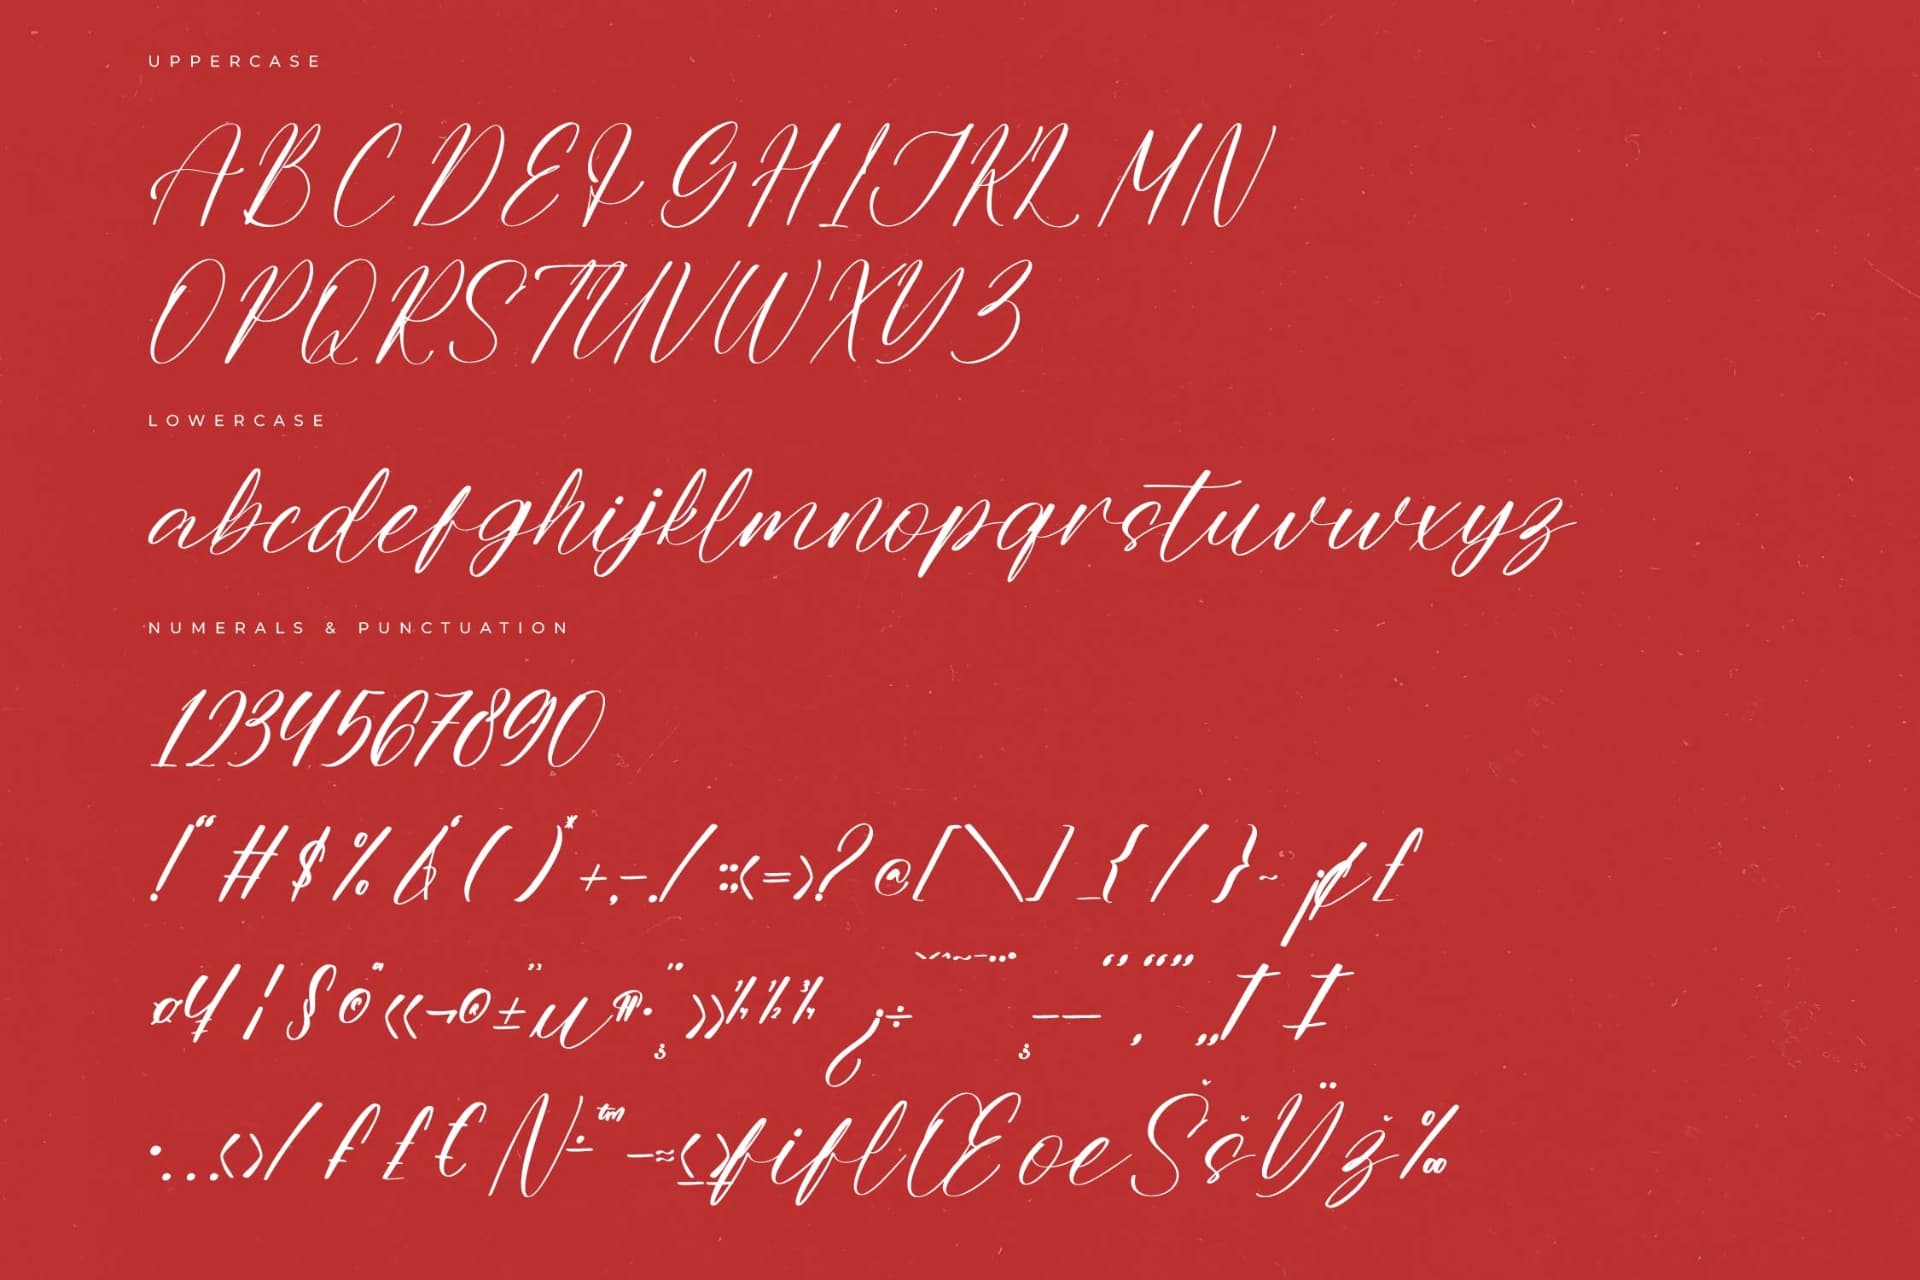 UPPERCASE
A B C D E F G H I J K L M N
O P Q R S T U V W X Y Z
LOWERCASE
abcdefghijklmnopqrstuvwxyz
NUMERALS & PUNCTUATION
1234567890
! “ # $ % & ‘ ( ) * + , - . / : ; < = > ? @ [ \ ] _ { / } ~ ¡ ¢ £
¤ ¥ ¦ § ¨ © « ¬ ® ± ” µ ¶ · ¸ ¨ » ¼ ½ ¾ ¿ ÷ ˘ ˇ ^ ~ ¯ ˙ ¸ – — ‘ ’ ‚ “ ” „ † ‡
• … ‹ › / ƒ £ € N ∸ ™ − ≈ ≤ ≥ fi fl Œ œ Š š Ÿ ž ‰